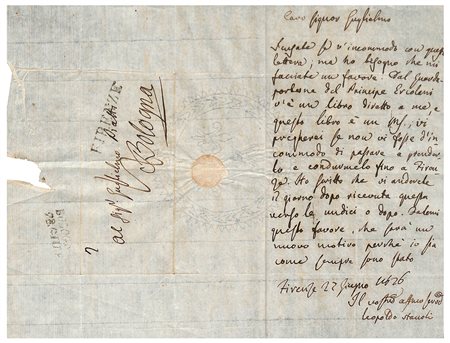 Caro Signor Guglielmo
Scusate se v'incommodo con questa
lettera, ma ho bisogno che mi
facciate un favore. Dal Guarda
portone del Principe Ercolani
v'è un libro diretto a me e
questo libro è un Ms, vi
pregherei se non vi fosse d'in
commodo di passare a prender
lo e condurmelo fino a Firen
ze. Ho scritto che vi andarete
il giorno dopo ricevuta questa
verso le undici o dopo.
questo favore, che sarà un
nuovo motivo perchè io sia
come sempre sono stato
Firenze 22 Giugno 1826
Il vostro
Leopoldo
FIRENZE
al Sig.r Guglielmo
Bologna